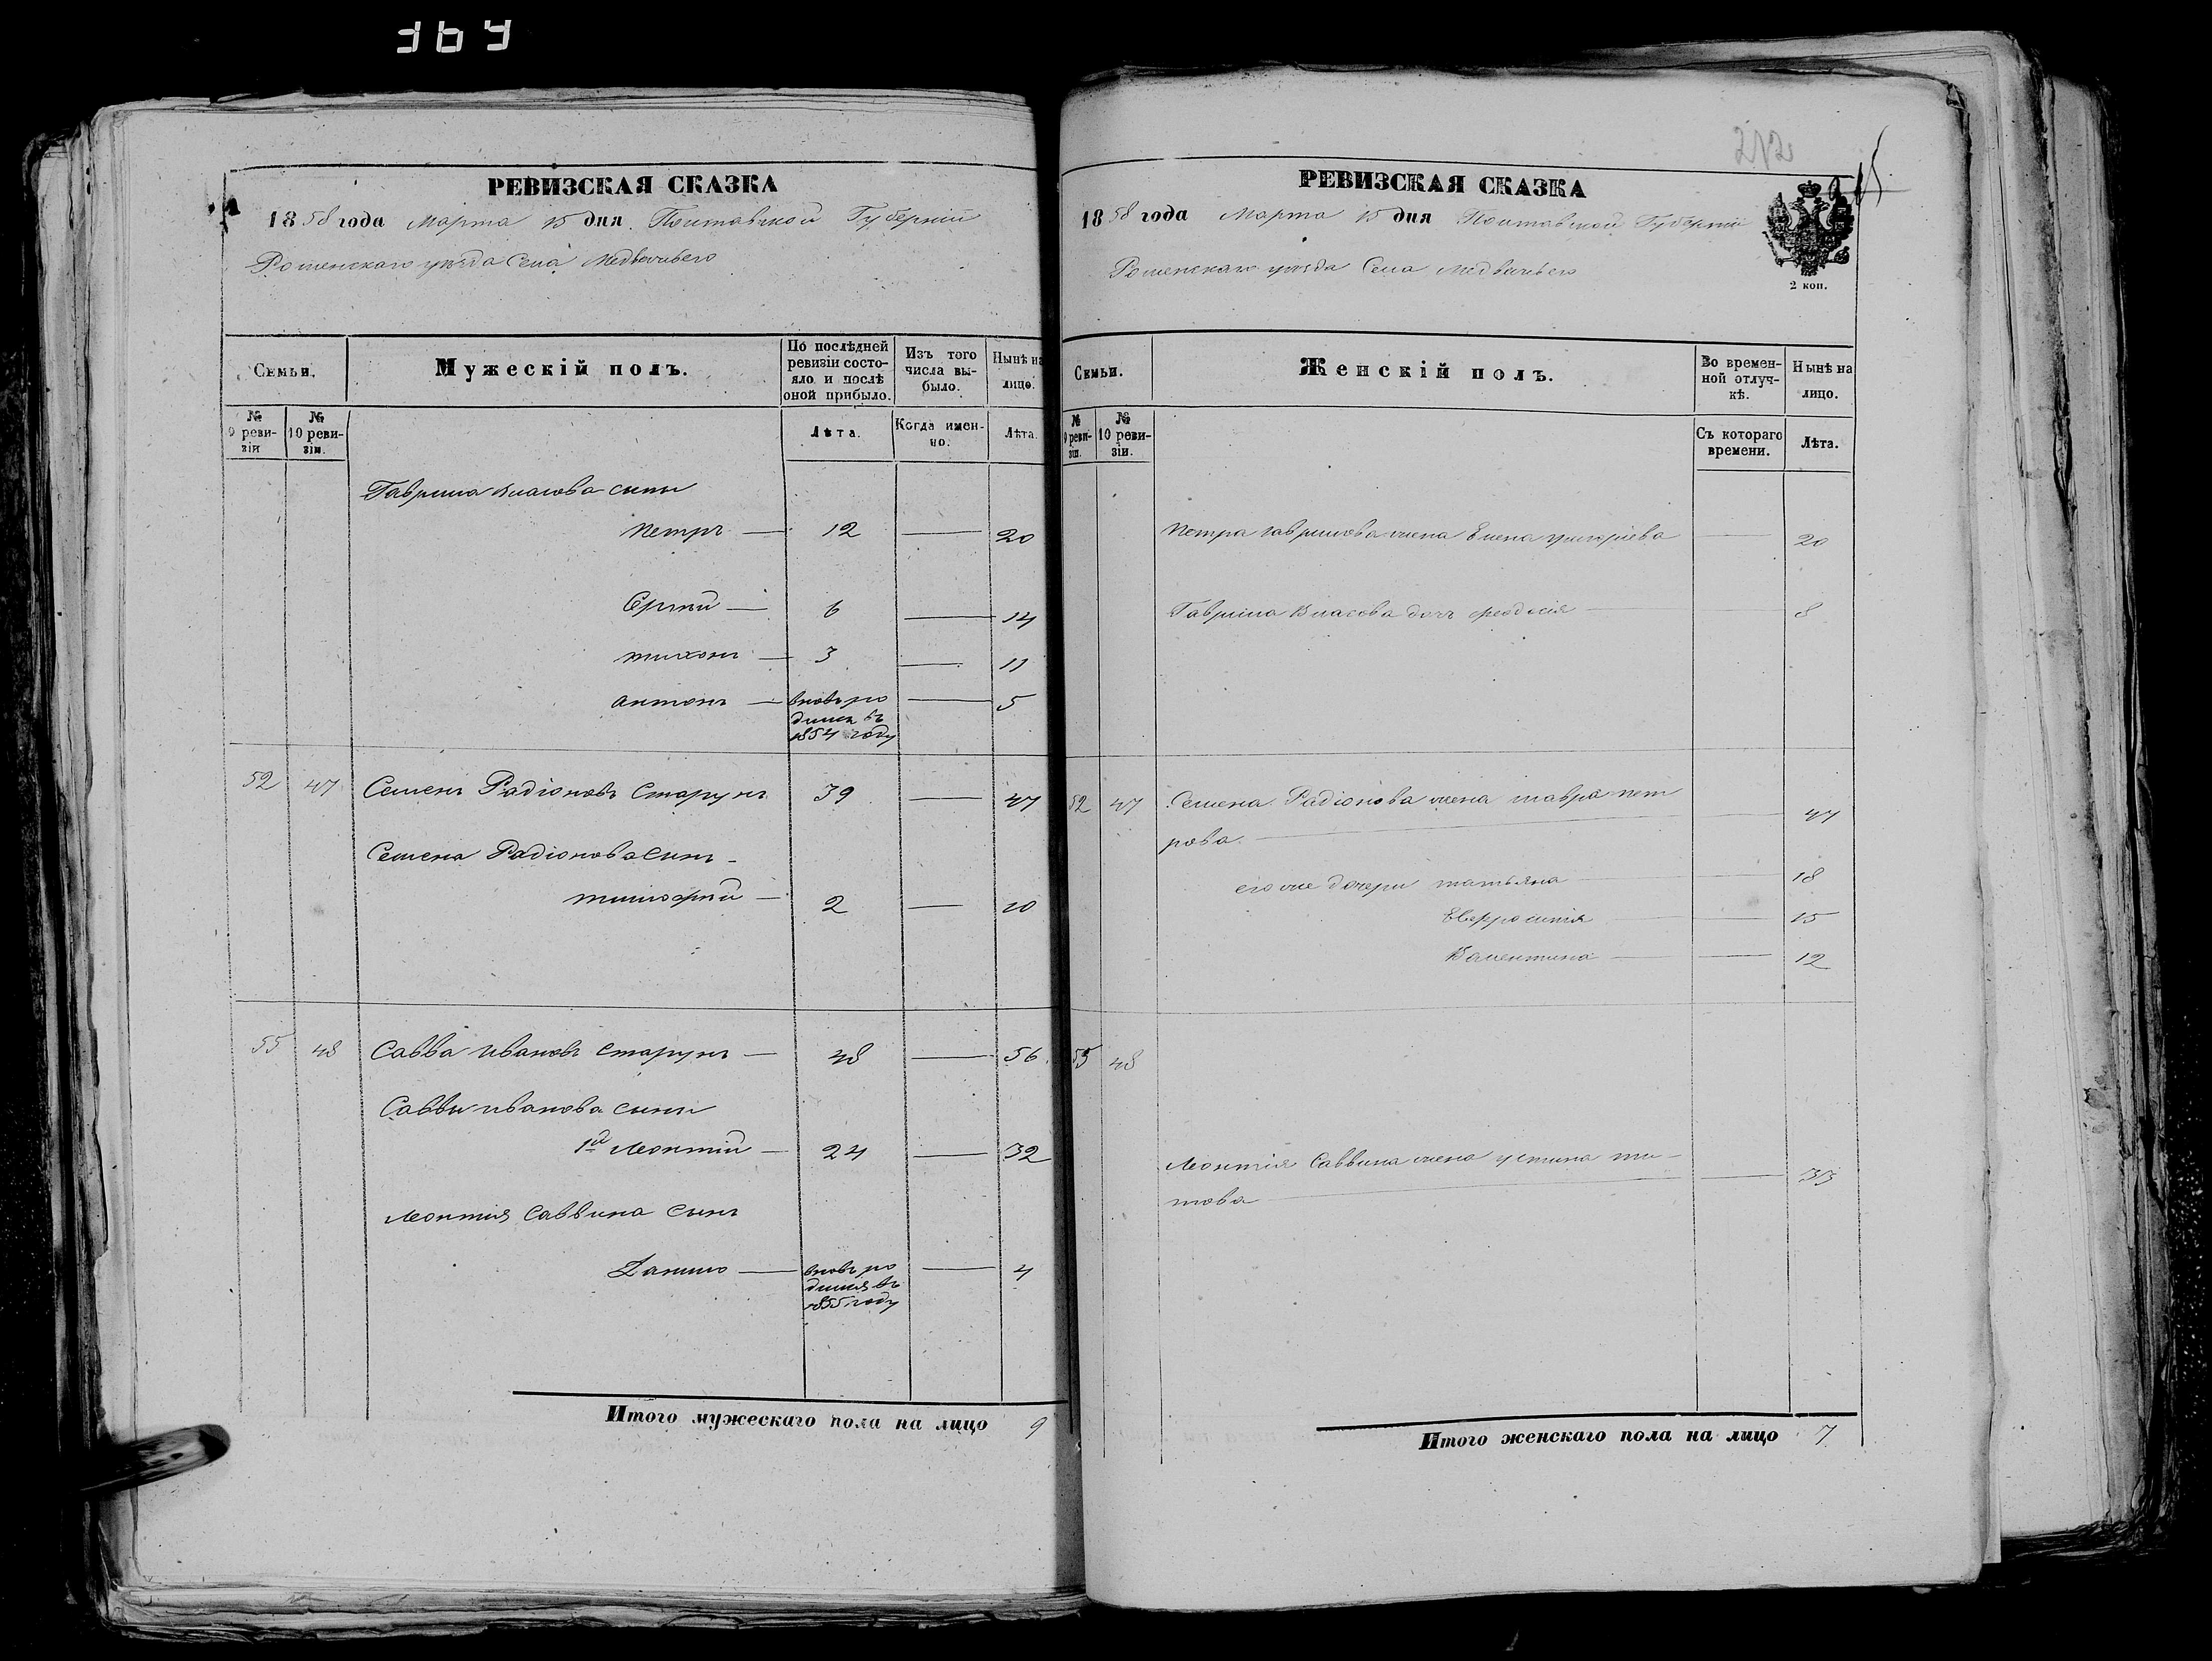 369
РЕВИЗСКАЯ СКАЗКА
1858 года Марта 15 дня. Полтавской Губерніи
Роменскаго уѣзда Села Медвежьего
Семьи.
Мужескій полъ.
По послѣдней ревизіи состояло и послѣ оной прибыло.
Изъ того числа выбыло.
Нынѣ на лицо.
№ 9 ревизіи
№ 10 ревизіи.
Лѣта.
Когда именно.
Лѣта.
Гаврила Власова сыны
Петръ — 12 — 20
Сергій — 6 — 14
Тихонъ — 3 — 11
Антонъ — вновь родился въ 1854 году — 5
52 47 Семенъ Радіоновъ Старунъ 39 — 47
Семена Радіонова сынъ
Тимофій — 2 — 10
55 48 Савва Ивановъ Старунъ — 48 — 56
Саввы Иванова сыны
1й Леонтій — 24 — 32
Леонтія Саввина сынъ
Данило — вновь родился въ 1855 году — 4
Итого мужескаго пола на лицо 9
212
РЕВИЗСКАЯ СКАЗКА
1858 года Марта 15 дня Полтавской Губерніи
Роменскаго уѣзда Села Медвежьего
2 коп.
Семьи.
Женскій полъ.
Во временной отлучкѣ.
Нынѣ на лицо.
№ 9 ревизіи.
№ 10 ревизіи.
Съ котораго времени.
Лѣта.
Петра Гаврилова жена Елена Григоріева — 20
Гаврила Власова дочь Феодосія — 8
52 47 Семена Радіонова жена Мавра Петрова — 47
его же дочери Татьяна — 18
Евфросинія — 15
Валентина — 12
55 48
Леонтія Саввина жена Устина Титова — 33
Итого женскаго пола на лицо 7